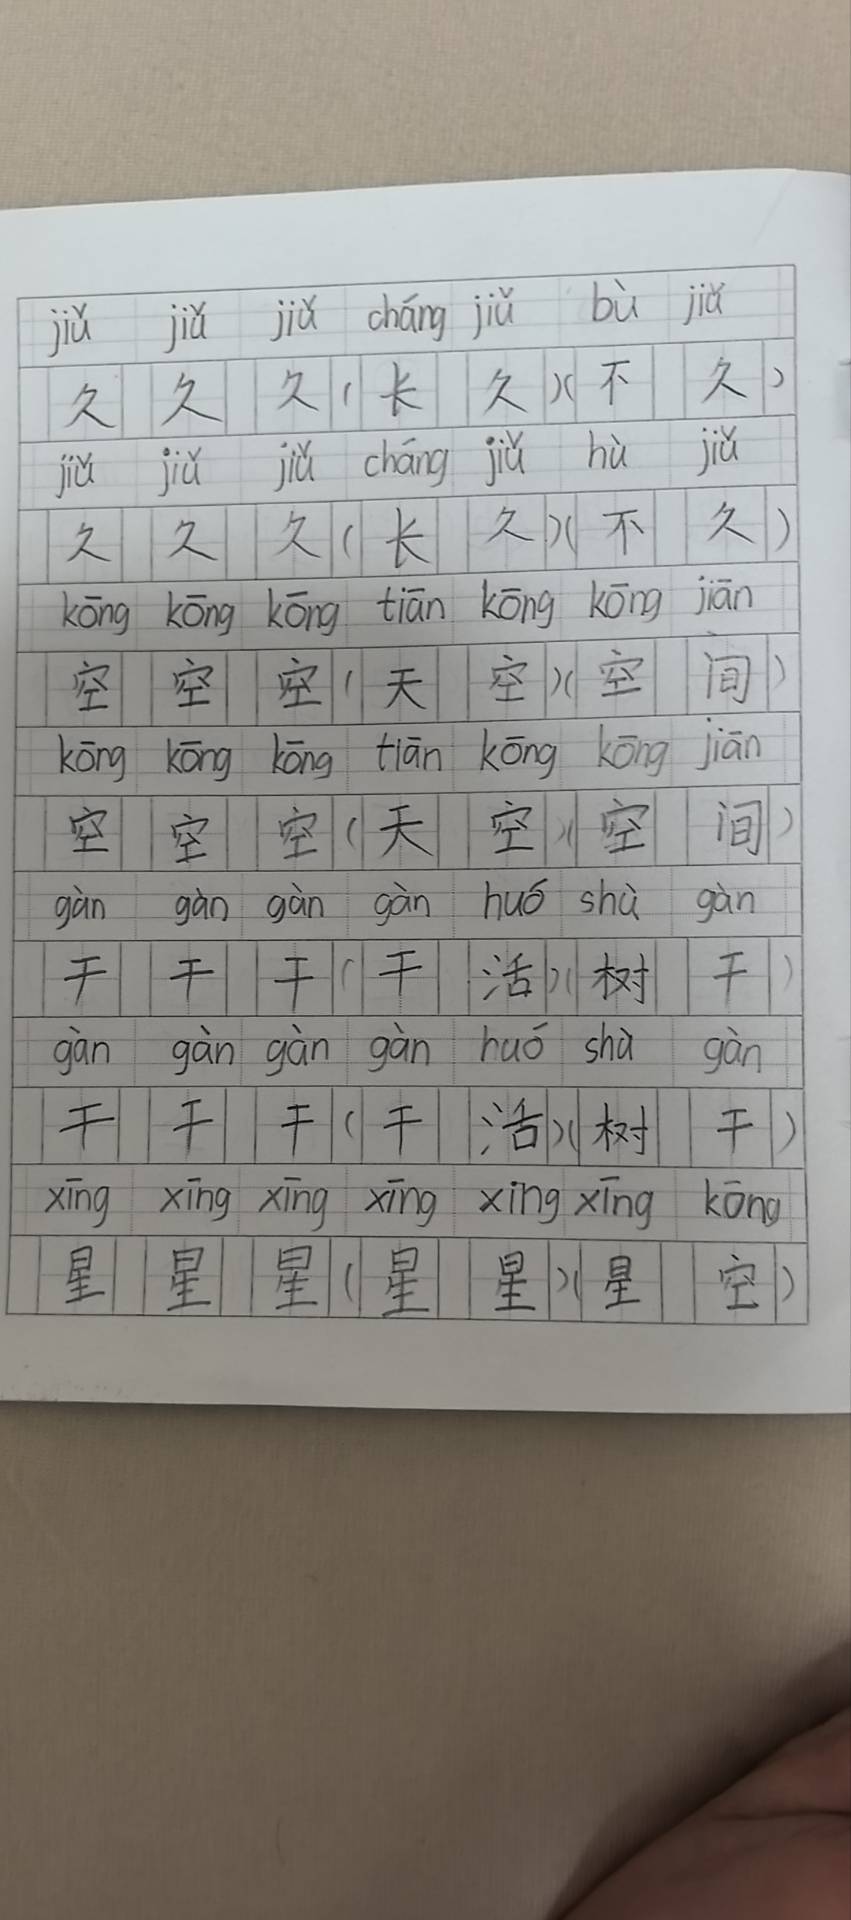 jiǔ jiǔ jiǔ cháng jiǔ bù jiǔ
久 久 久 ( 长 久 ) ( 不 久 )
jiǔ jiǔ jiǔ cháng jiǔ hù jiǔ
久 久 久 ( 长 久 ) ( 不 久 )
kōng kōng kōng tiān kōng kōng jiān
空 空 空 ( 天 空 ) ( 空 间 )
kōng kōng kōng tiān kōng kōng jiān
空 空 空 ( 天 空 ) ( 空 间 )
gàn gàn gàn gàn huó shù gàn
干 干 干 ( 干 活 ) ( 树 干 )
gàn gàn gàn gàn huó shù gàn
干 干 干 ( 干 活 ) ( 树 干 )
xīng xīng xīng xīng xing xīng kōng
星 星 星 ( 星 星 ) ( 星 空 )